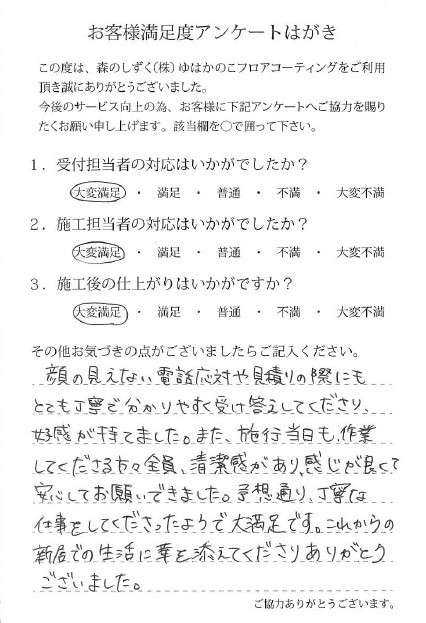 お客様満足度アンケートはがき
この度は、森のしずく(株)ゆはかのこフロアコーティングをご利用
頂き誠にありがとうございました。
今後のサービス向上の為、お客様に下記アンケートへご協力を賜り
たくお願い申し上げます。該当欄を○で囲って下さい。
1．受付担当者の対応はいかがでしたか？
大変満足 ・ 満足 ・ 普通 ・ 不満 ・ 大変不満
2．施工担当者の対応はいかがでしたか？
大変満足 ・ 満足 ・ 普通 ・ 不満 ・ 大変不満
3．施工後の仕上がりはいかがですか？
大変満足 ・ 満足 ・ 普通 ・ 不満 ・ 大変不満
その他お気づきの点がございましたらご記入ください。
顔の見えない電話応対や見積りの際にも
とても丁寧で分かりやすく受け答えしてくださり、
好感が持てました。また、施行当日も、作業
してくださる方々全員、清潔感があり、感じが良くて
安心してお願いできました。予想通り、丁寧な
仕事をしてくださったようで大満足です。これからの
新居での生活に華を添えてくださりありがとう
ございました。
ご協力ありがとうございます。